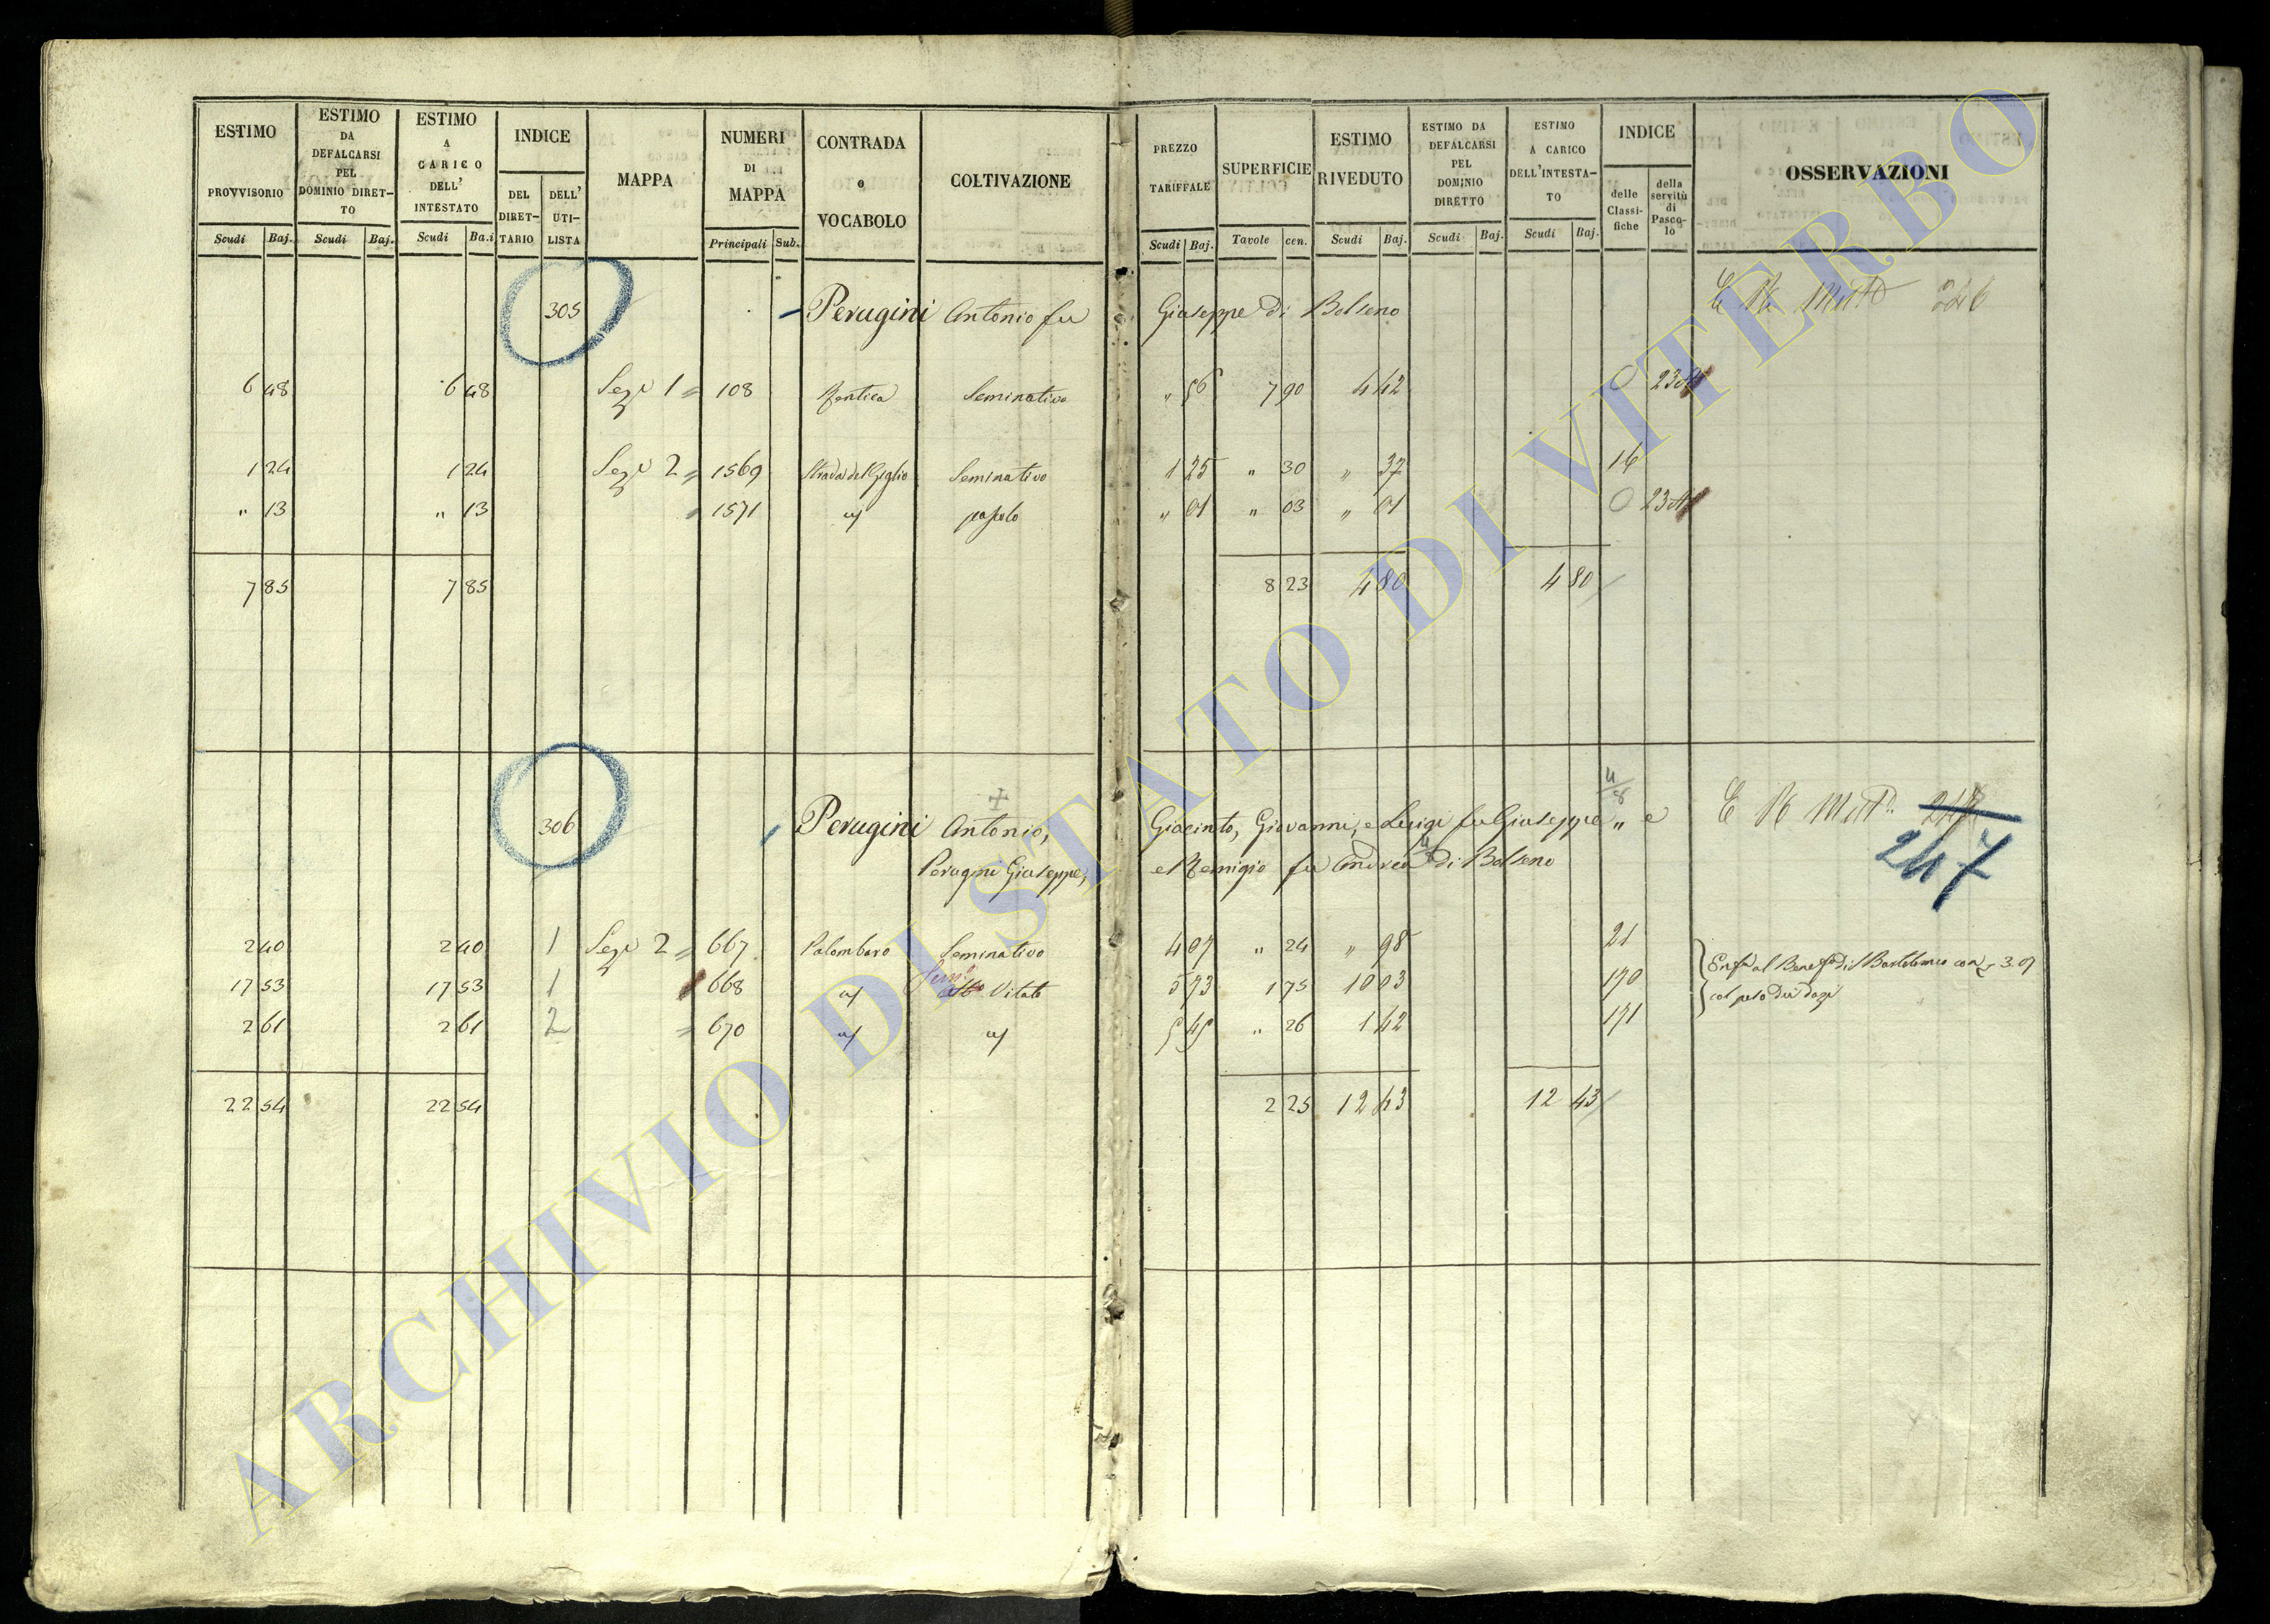 ESTIMO PROVVISORIO Scudi Baj.
ESTIMO DA DEFALCARSI PEL DOMINIO DIRETTO Scudi Baj.
ESTIMO A CARICO DELL' INTESTATO Scudi Ba.i
INDICE DEL DIRETTARIO DELL' UTILISTA
MAPPA
NUMERI DI MAPPA Principali Sub.
CONTRADA o VOCABOLO
COLTIVAZIONE
PREZZO TARIFFALE Scudi Baj.
SUPERFICIE Tavole cen.
ESTIMO RIVEDUTO Scudi Baj.
ESTIMO DA DEFALCARSI PEL DOMINIO DIRETTO Scudi Baj.
ESTIMO A CARICO DELL'INTESTATO Scudi Baj.
INDICE delle Classifiche della servitù di Pascolo
OSSERVAZIONI
305 Perugini Antonio fu Giuseppe di Bolseno
6 48 6 48 Sezе 1 = 108 Seminativo " 56 7 90 4 42 0
1 24 1 24 Sezе 2 = 1569 Strada del Giglio Seminativo 1 25 " 30 " 37 16
" 13 " 13 1571 " pascolo " 01 " 03 " 01 0
7 85 7 85 8 23 4 80 4 80
306 Perugini Antonio, Giacinto, Giovanni, e Luigi fu Giuseppe " e
4/8
Perugini Giuseppe, e Remigio fu Andrea di Bolseno
247
2 40 2 40 1 Sezе 2 = 667 Palombaro Seminativo 4 07 " 24 " 98 21
17 53 17 53 1 668 Vitato 5 73 1 75 10 03 170
2 61 2 61 2 = 670 5 45 " 26 1 42 171
al Benef. di S Bartolomeo con 3.07
col peso dei dazi
22 54 22 54 2 25 12 43 12 43
ARCHIVIO DI STATO DI VITERBO